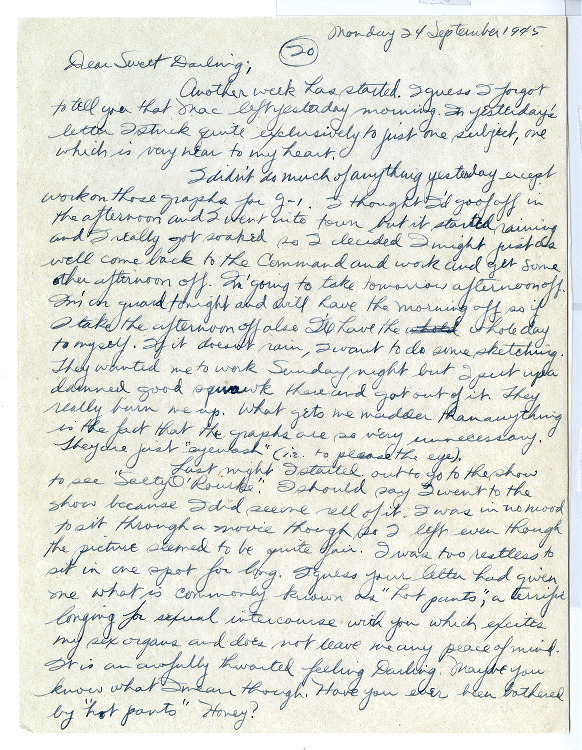 Monday 24 September 1945
20
Dear Sweet Darling;
Another week has started. I guess I forgot
to tell you that Mac left yesterday morning. In yesterday's
letter I stuck quite exclusively to just one subject, one
which is very near to my heart.
I didn't do much of anything yesterday except
work on those graphs for G-1. I thought I'd goof off in
the afternoon and I went into town but it started raining
and I really got soaked so I decided I might just as
well come back to the Command and work and get some
other afternoon off. I'm going to take tomorrow afternoon off.
I'm on guard tonight and will have the morning off so if
I take the afternoon off also I'll have the whole day
to myself. If it doesn't rain, I want to do some sketching.
They wanted me to work Sunday night but I put up a
damned good squawk there and got out of it. They
really burn me up. What gets me madder than anything
is the fact that the graphs are so very unnecessary.
They are just "eyewash" (i.e. to please the eye).
Last night I started out to go to the show
to see "Salty O'Rourke". I should say I went to the
show because I did see one reel of it. I was in no mood
to sit through a movie though so I left even though
the picture seemed to be quite fair. I was too restless to
sit in one spot for long. I guess your letter had given
me what is commonly known as "hot pants", a terrific
longing for sexual intercourse with you which excites
my sex organs and does not leave me any peace of mind.
It is an awfully thwarted feeling Darling. Maybe you
know what I mean though. Have you ever been bothered
by "hot pants" Honey?